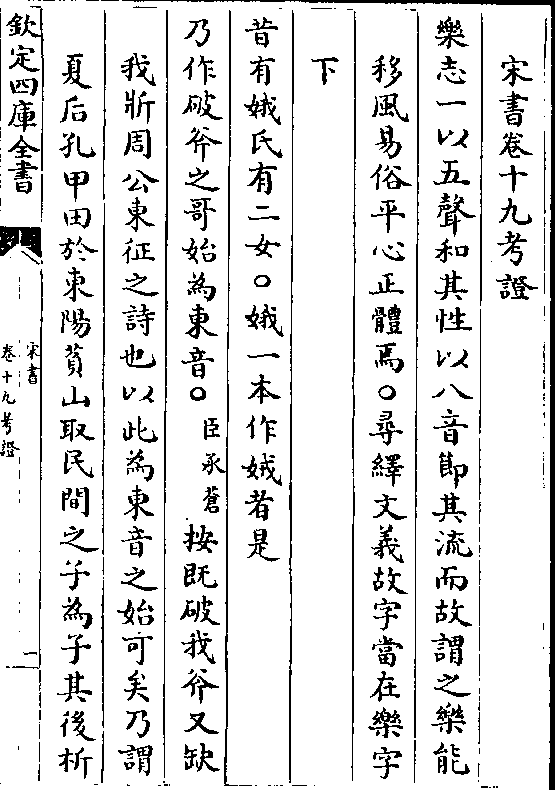 宋書卷十九考證
樂志一以五聲和其性以八音節其流而故謂之樂能
移風易俗平心正體焉○尋繹文義故字當在樂字
下
昔有娥氏有二女○娥一本作娀者是
乃作破斧之哥始為東音○臣承蒼按既破我斧又缺
我斨周公東征之詩也以此為東音之始可矣乃謂
夏后孔甲田於東陽萯山取民間之子為子其後析
欽定四庫全書
宋書
卷十九考證
一